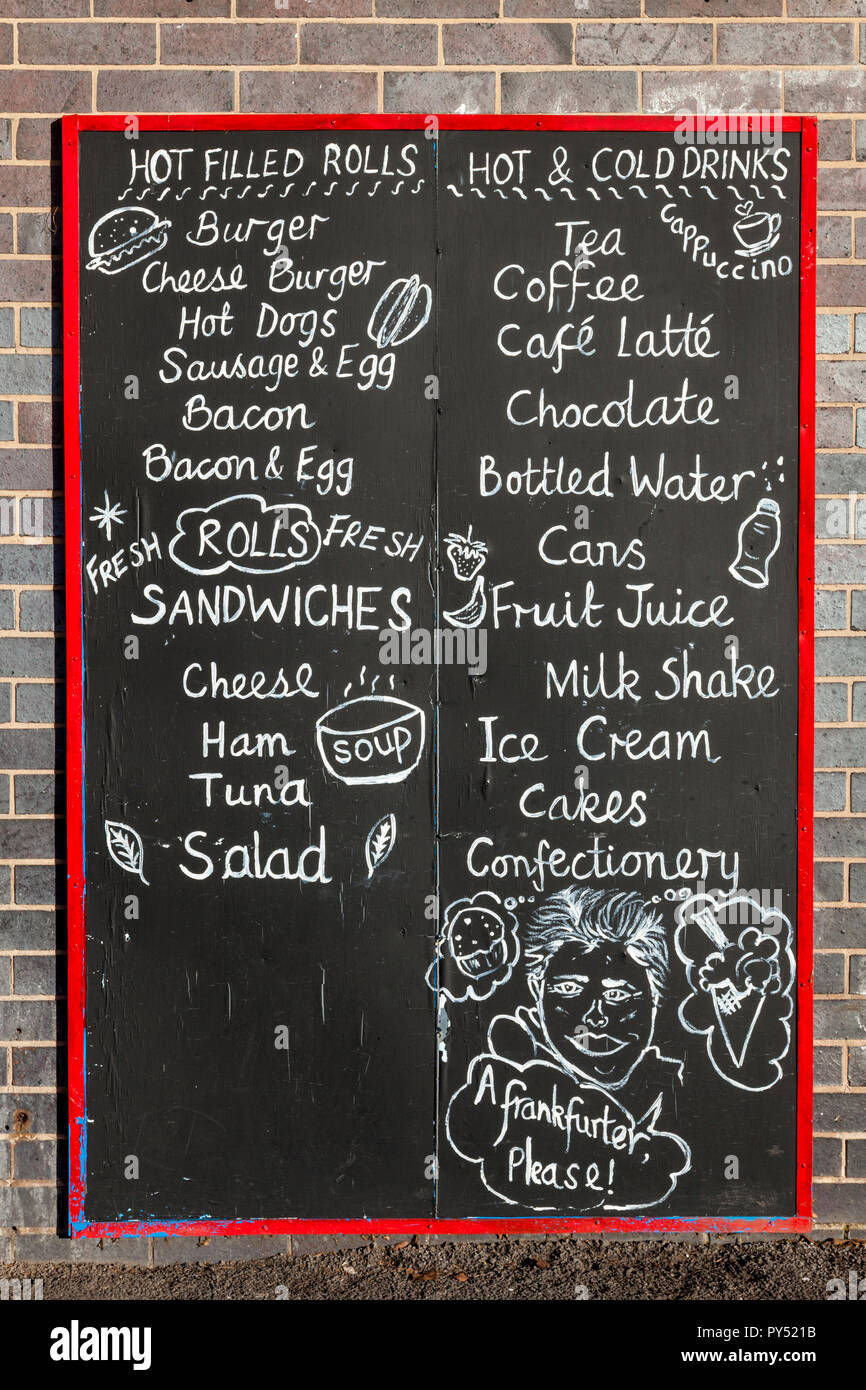 HOT FILLED ROLLS
Burger
Cheese Burger
Hot Dogs
Sausage & Egg
Bacon
Bacon & Egg
FRESH ROLLS FRESH
SANDWICHES
Cheese
Ham
SOUP
Tuna
Salad
HOT & COLD DRINKS
Tea
Cappuccino
Coffee
Café Latté
Chocolate
Bottled Water
Cans
Fruit Juice
Milk Shake
Ice Cream
Cakes
Confectionery
A frankfurter,
please!
alamy
Image ID: PY521B
www.alamy.com